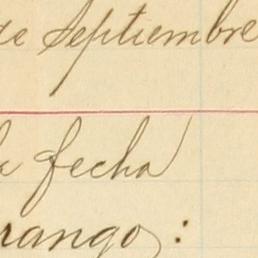 de Septiembre
la fecha
rango: